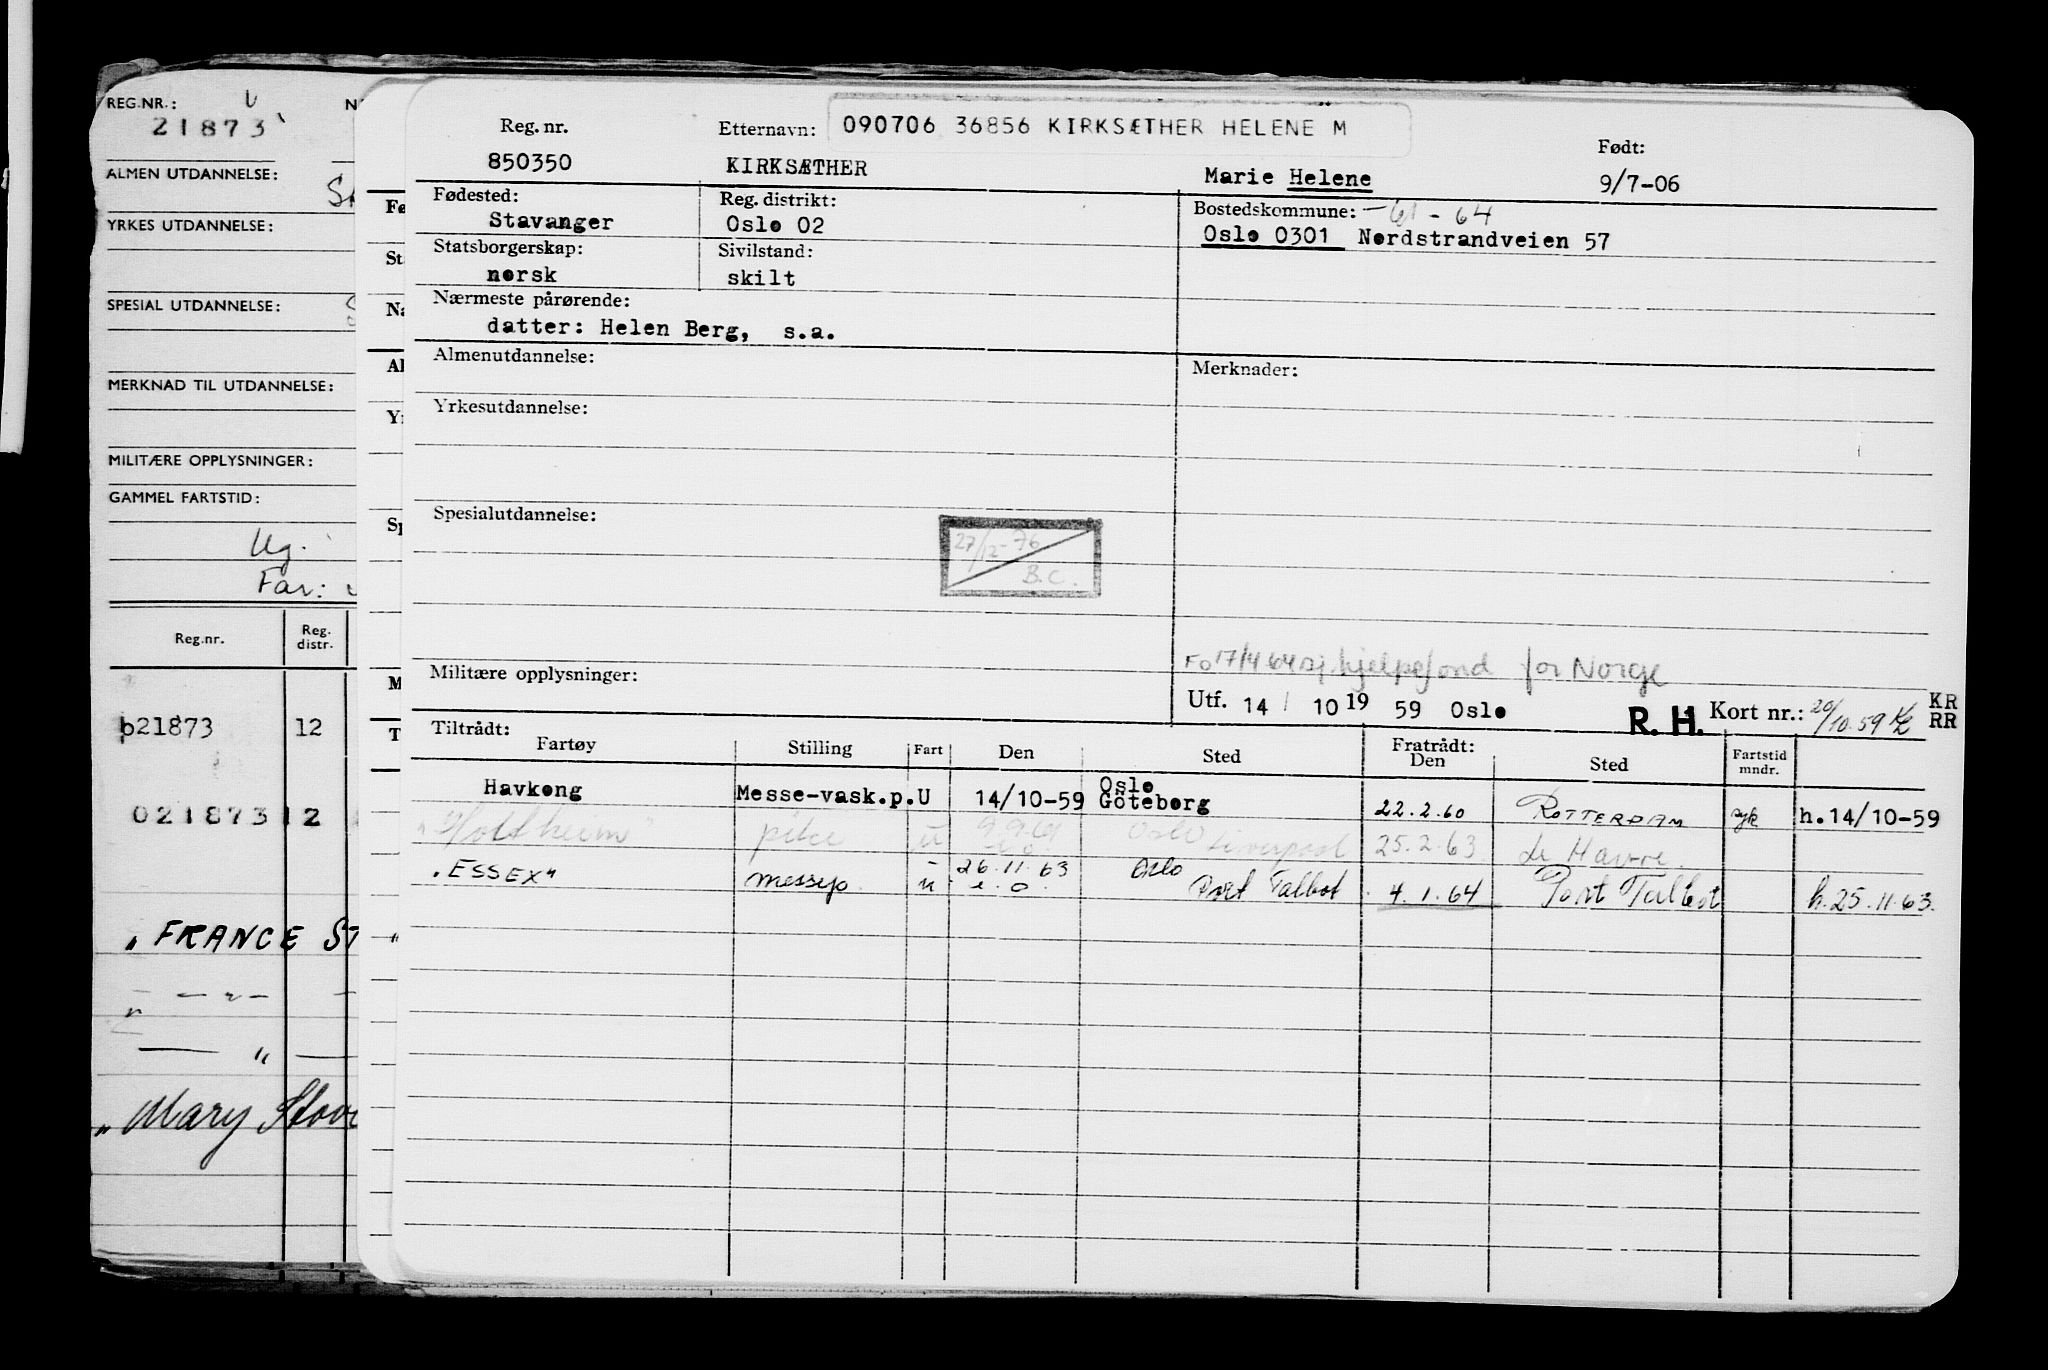 REG.NR.: 21873
ALMEN UTDANNELSE:
YRKES UTDANNELSE:
SPESIAL UTDANNELSE:
MERKNAD TIL UTDANNELSE:
MILITÆRE OPPLYSNINGER:
GAMMEL FARTSTID:
Ug.
Far:
Reg.nr. Reg. distr.
p21873 12
021873 12
"FRANCE ST
"Mary Stov
Reg. nr. Etternavn: 090706 36856 KIRKSÆTHER HELENE M Født:
850350 KIRKSÆTHER Marie Helene 9/7-06
Fødested: Reg. distrikt: Bostedskommune: -61-64
Stavanger Oslo 02 Oslo 0301 Nordstrandveien 57
Statsborgerskap: Sivilstand:
norsk skilt
Nærmeste pårørende:
datter: Helen Berg, s.a.
Almenutdannelse: Merknader:
Yrkesutdannelse:
Spesialutdannelse:
27/12-76
B.C.
Fo 17/4 64 sj. hjelpefond for Norge
Militære opplysninger: Utf. 14/10 19 59 Oslo R.H. Kort nr.: 20/10.59 KR
RR
Tiltrådt: Fratrådt:
Fartøy Stilling Fart Den Sted Den Sted Fartstid mndr.
Havkong Messe-vask.p. U 14/10-59 Oslo Göteborg 22.2.60 ROTTERDAM syk h.14/10-59
pike u Oslo Liverpool 25.2.63 le Havre.
"ESSEX" messep. u 26.11.63 Oslo Port Talbot 4.1.64 Port Talbot h.25.11.63.